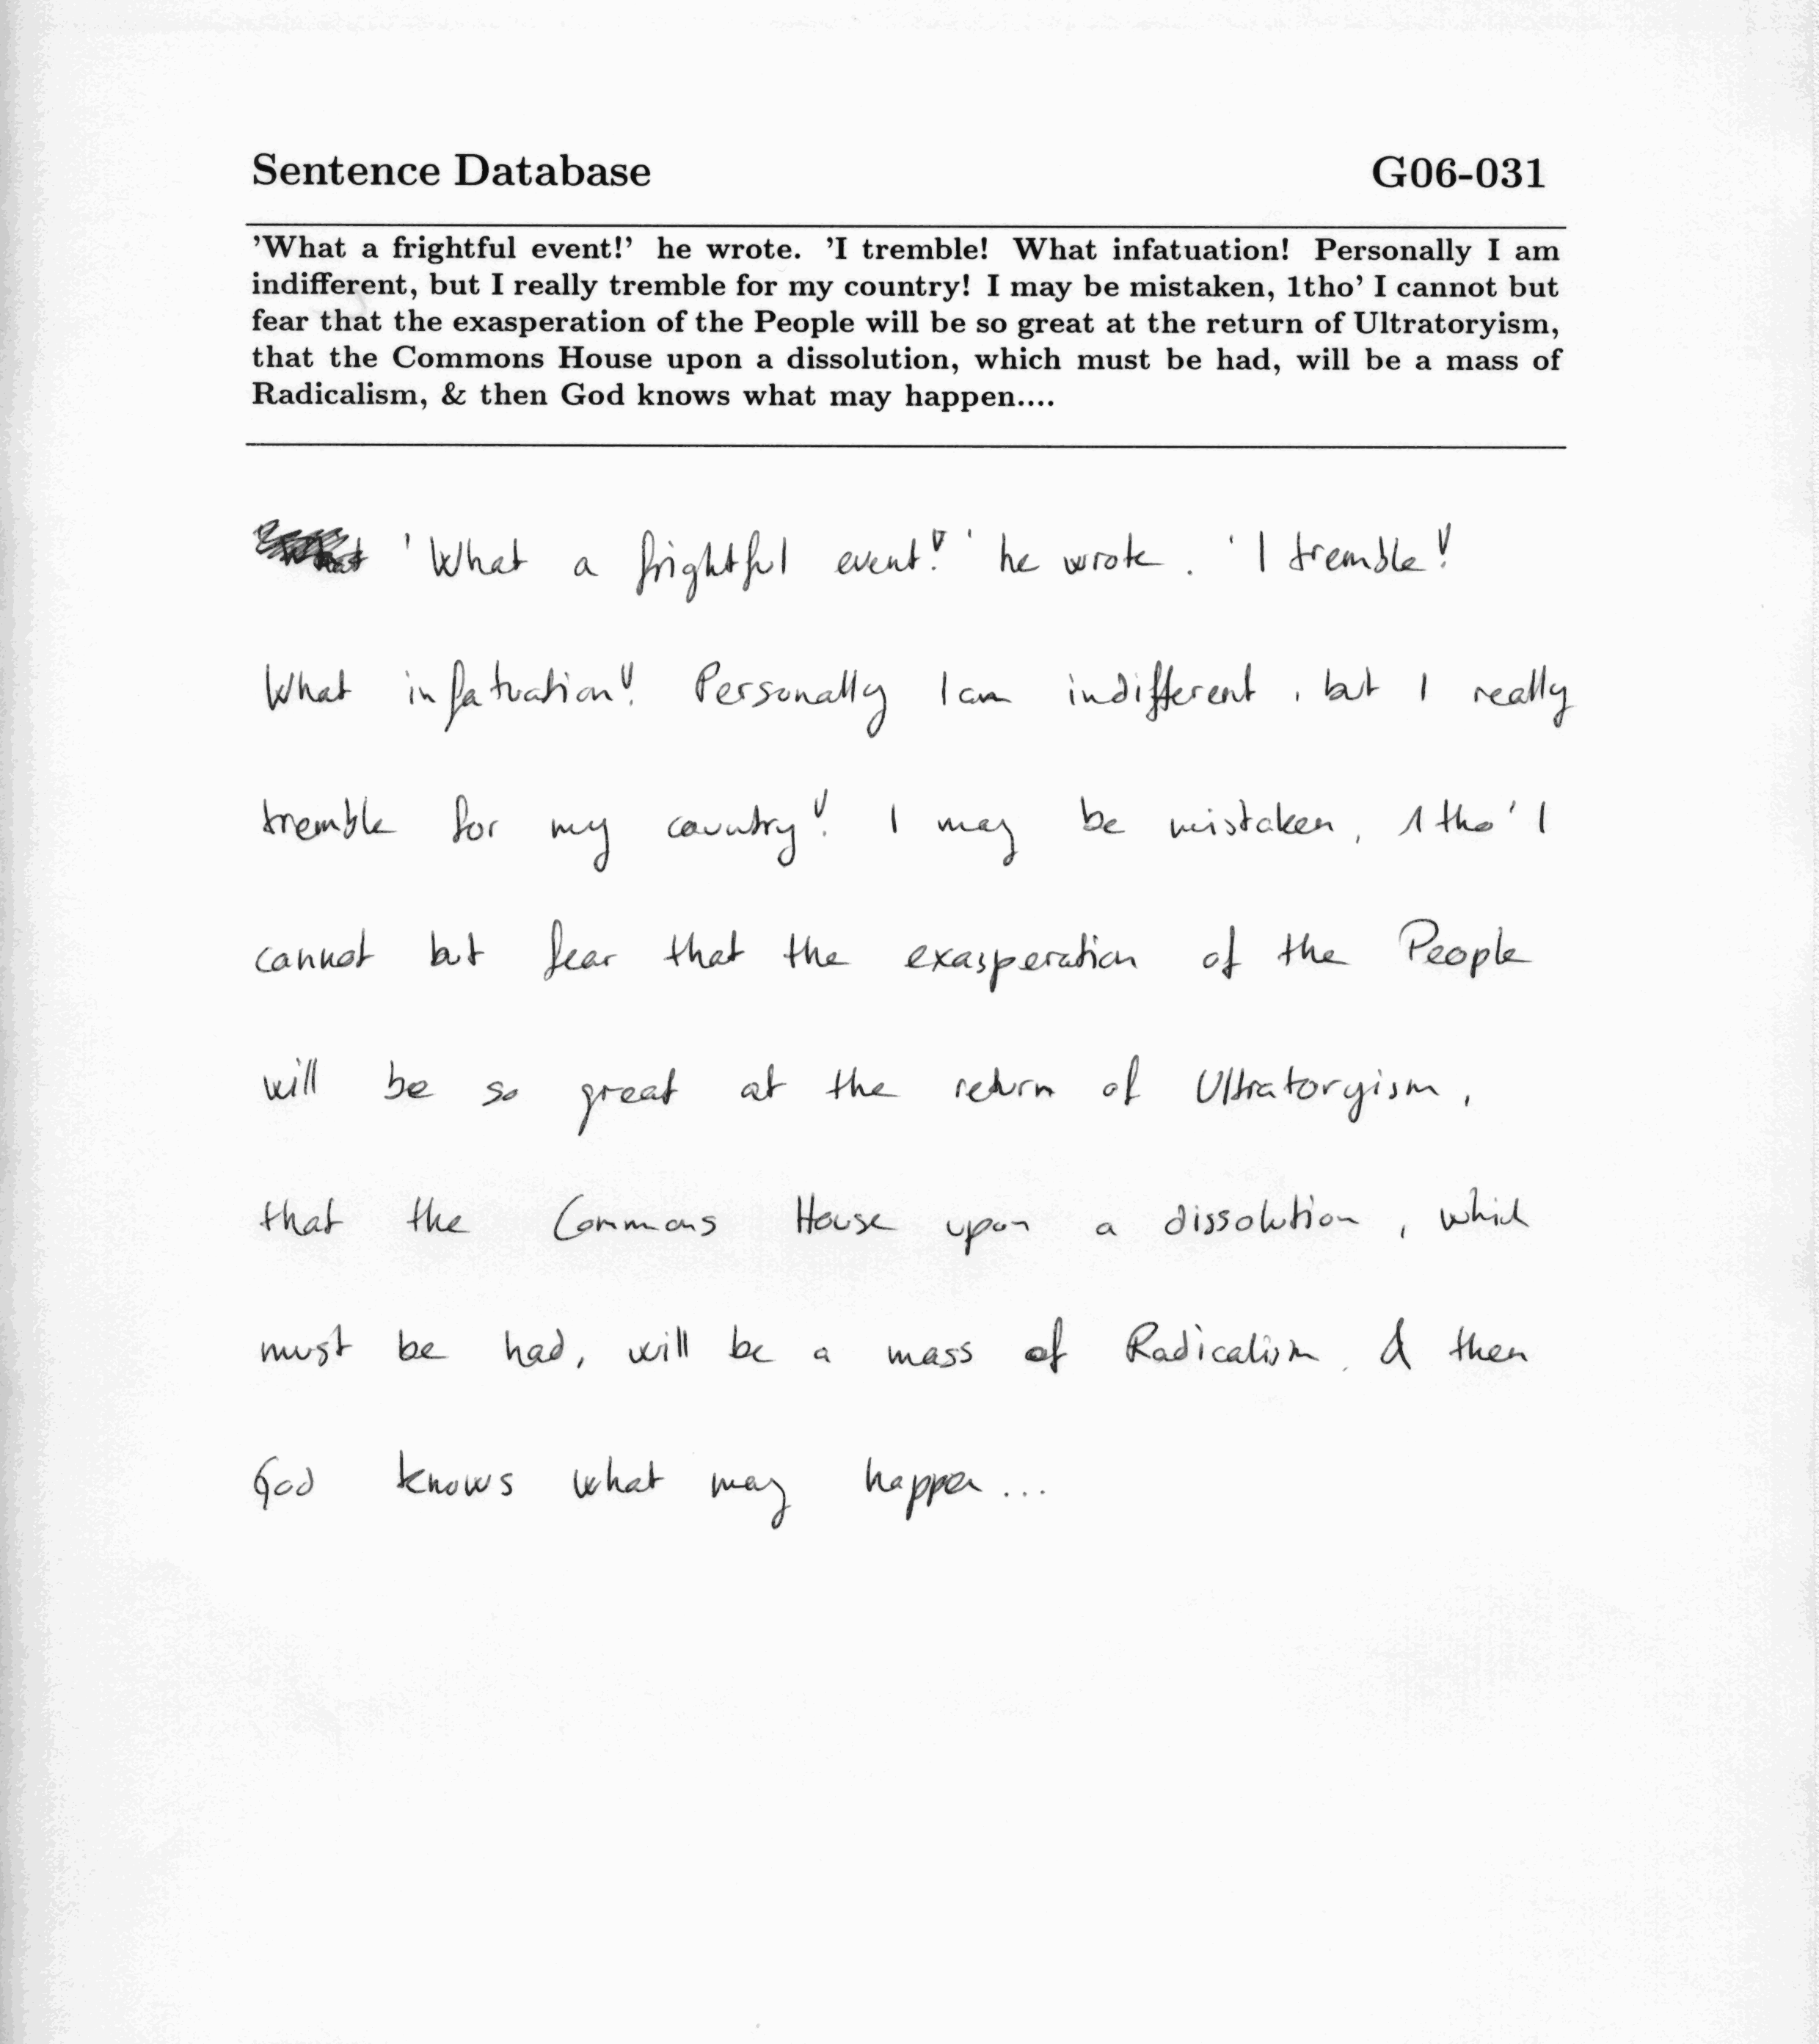 Sentence Database G06-031
’What a frightful event!’ he wrote. ’I tremble! What infatuation! Personally I am
indifferent, but I really tremble for my country! I may be mistaken, 1tho’ I cannot but
fear that the exasperation of the People will be so great at the return of Ultratoryism,
that the Commons House upon a dissolution, which must be had, will be a mass of
Radicalism, & then God knows what may happen....
'What a frightful event!' he wrote. 'I tremble!
What infatuation! Personally I am indifferent, but I really
tremble for my country! I may be mistaken, 1tho' I
cannot but fear that the exasperation of the People
will be so great at the return of Ultratoryism,
that the Commons House upon a dissolution, which
must be had, will be a mass of Radicalism, & then
God knows what may happen...